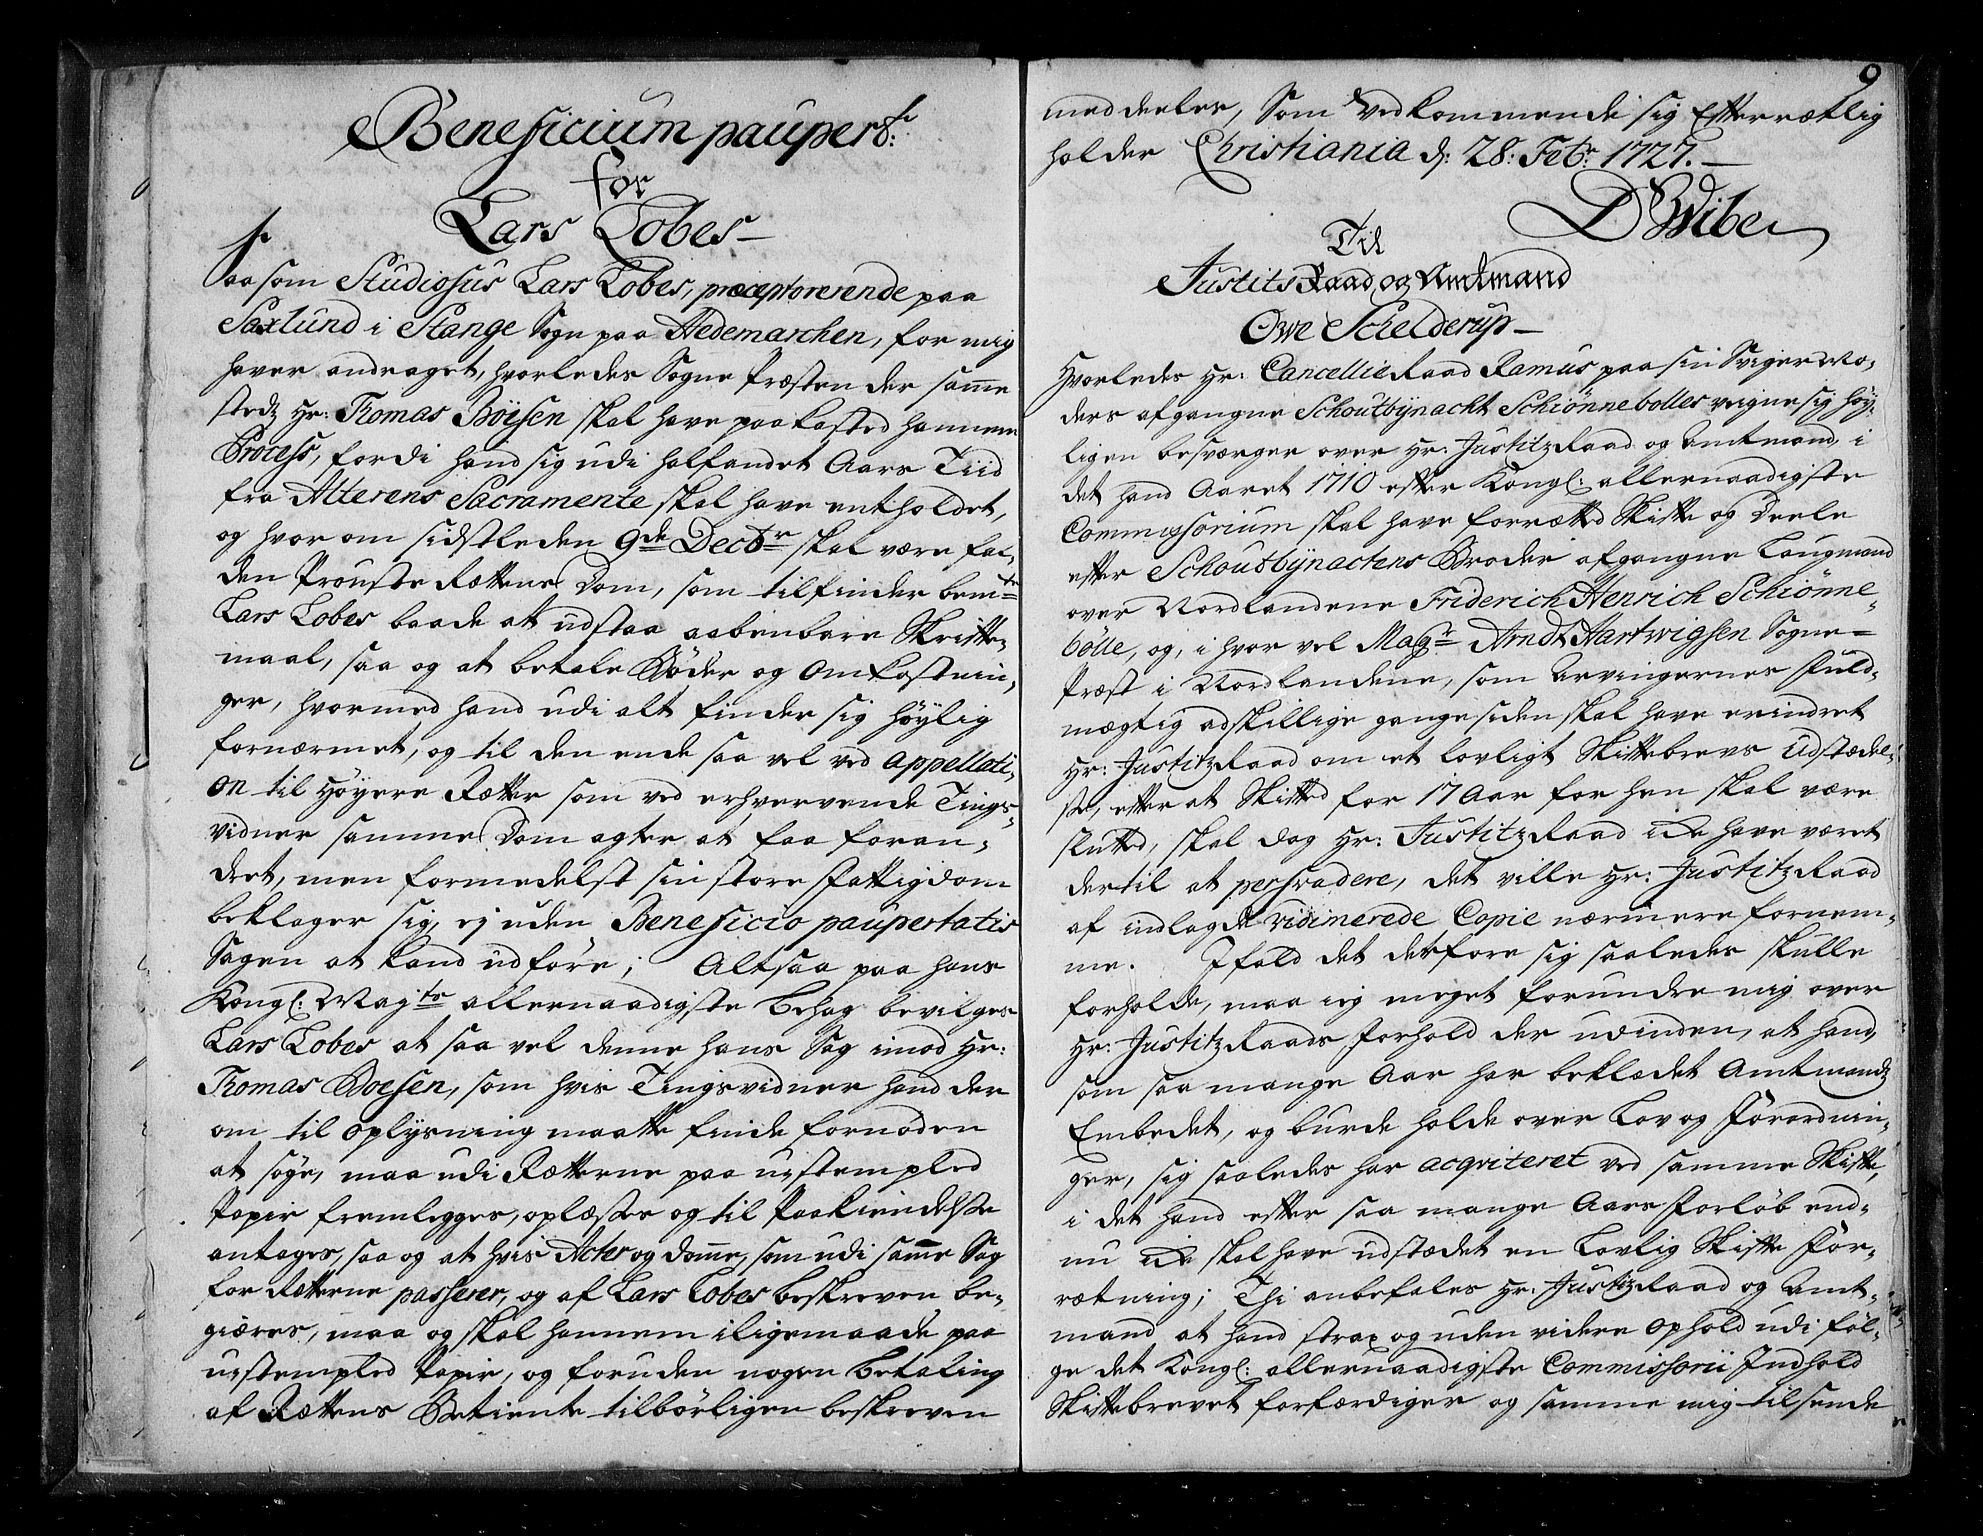 Beneficium paupert:
for
Lars Lobes
Saasom Studiosus Lars Lobes, præceptorerende paa
Saxlund i Stange Sogn paa Hedemarchen, for mig
haver andraget, hvorledes Sogne Præsten der samme
stedz Hr: Thomas Böisen skal have paakasted hannem
Process, fordi hand sig udi halfandet Aars Tiid
fra Alterens Sacramente skal have entholdet,
og hvor om sidstleden 9de Decbr skal være fal-
den Prouste Rættens Dom, som tilfinder bemte
Lars Lobes baade at udstaa aabenbare Skrifte-
maal, saa og at betale Böder og Omkostnin-
ger, hvormed hand udi alt finder sig höylig
fornærmet, og til den ende saa vel ved Appellati-
on til Höyere Rætter som ved erhvervende Tings-
vidner samme Dom agter at faa foran-
dret, men formedelst sin store Fattigdom
beklager sig, ej uden Beneficio paupertatis
Sagen at kand udföre; Altsaa paa hans
Kongl: Majts allernaadigste Behag bevilges
Lars Lobes at saa vel denne hans Sag imod Hr:
Thomas Boesen, som hvis Tingsvidner hand der
om til oplysning maatte finde fornöden
at söge, maa udi Rætterne paa ustempled
Papir fremlegges, oplæses og til Paakiendelse
antages, saa og at hvis Acter og domme, som udi samme Sag
for Rætterne passerer, og af Lars Lobes beskreven be-
giæres, maa og skal hannem iligemaade paa
ustempled Papir, og foruden nogen betaling
af Rættens Betiente tilbörligen beskreven
9
meddeeles, Som Vedkommende sig Efterrætlig
holder Christiania d: 28: Febr 1727.
D Wibe
Til
Justits Raad og Amtmand
Owe Schelderup
Hvorledes Hr: Cancellie Raad Ramus paa sin Sviger Mo-
ders afgangne Schoutbÿnacht Schiönnebölles veigne sig höy-
ligen besværger over Hr: Justitz Raad og Amtmand, i
det hand Aaret 1710 efter Kongl: allernaadigste
Commissorium skal have forrætted Skifte og Deele
efter Schoutbÿnactens Broder afgangne Laugmand
over Nordlandene Friderich Henrich Schiönne-
bölle, og, i hvor vel Magr Arndt Hartwigsen Sogne-
Præst i Nordlandene, som Arvingernes Fuld-
mægtig adskillige gange siden skal have erindret
Hr: Justitz Raad om et lovligt Skiftebrevs Udstædel-
se, efter at Skifted for 17 Aar for hen skal være
slutted, skal dog Hr: Justitz Raad icke have været
dertil at persvadere, det ville Hr: Justitz Raad
af indlagde vidimerede Copie nærmere fornem-
me. Ifald det derfore sig saaledes skulle
forholde, maa ieg meget forundre mig over
Hr: Justitz Raads forhold der udinden, at hand
som saa mange Aar har beklædet Amtmandz
Embedet, og burde holde over Lov og Forordnin-
ger, sig saaledes har acqviteret ved samme Skifte,
i det hand efter saa mange Aars Forlöb end-
nu icke skal have udstædet en Lovlig Skifte For-
rætning; Thi anbefales Hr: Justitz Raad og Amt-
mand at hand strax og uden videre Ophold udi föl-
ge det Kongl: allernaadigste Commissorii Indhold
Skiftebrevet forfærdiger og samme mig tilsende